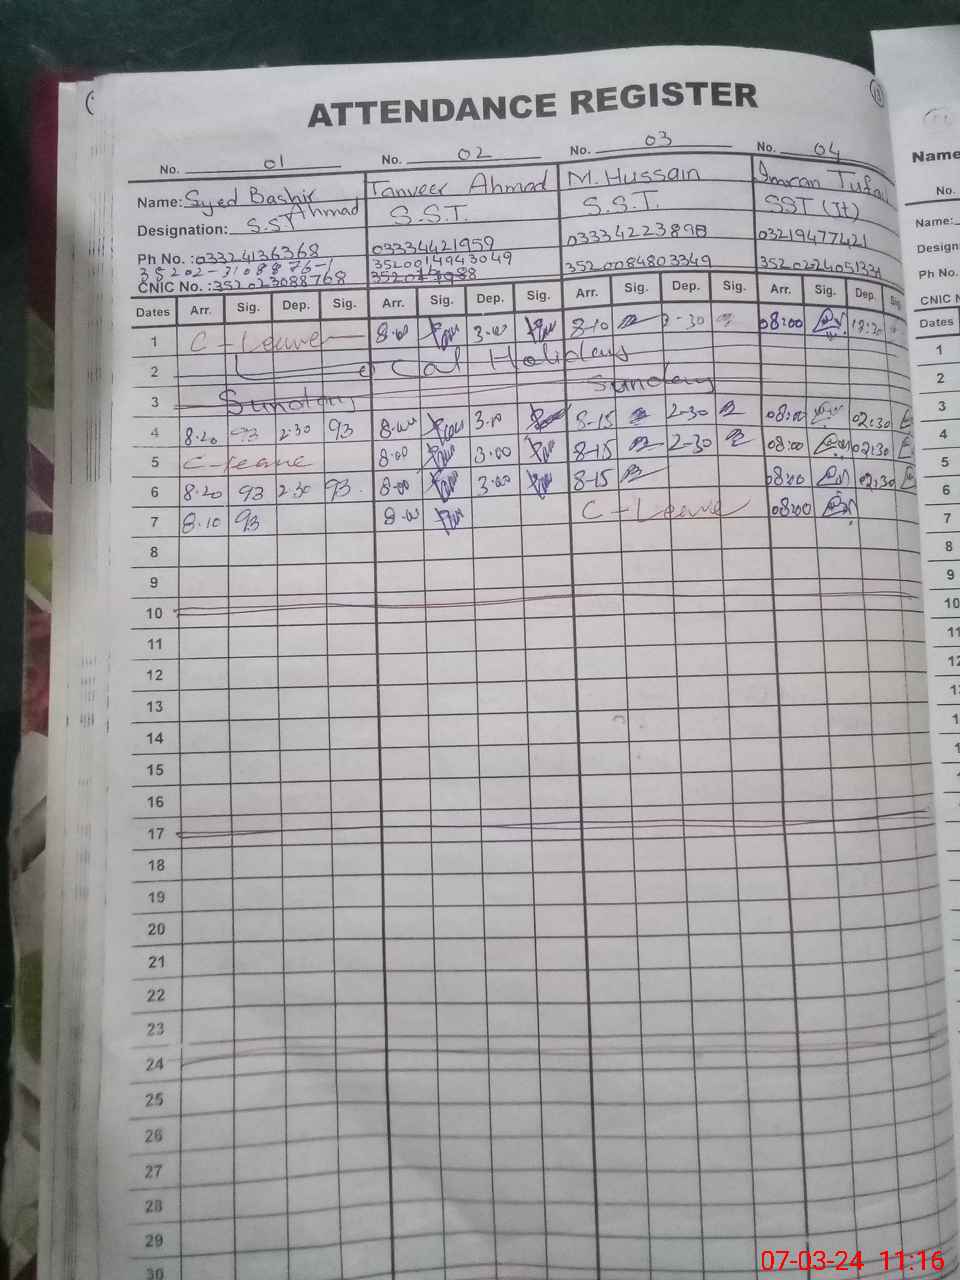 ATTENDANCE REGISTER
No. 01 No. 02 No. 03 No. 04
Name: Syed Bashir Ahmad Tanveer Ahmad M. Hussain Imran Tufail
Designation: S.ST S.S.T. S.S.T. SST (It)
Ph No. : 03324136368 03334421959 03334223898 03219477421
35202-3108876-1 3520014943049
CNIC No. : 352023088768 3520084803349
Dates Arr. Sig. Dep. Sig. Arr. Sig. Dep. Sig. Arr. Sig. Dep. Sig. Arr. Sig. Dep.
1 C-Leave 8.00 3.00 8-10 2-30 08:00
2 Local Holidays
3 Sunday Sunday
4 8.20 2.30 8.00 3.00 8-15 2-30 08:00 02:30
5 C-Leave 8.00 3.00 8-15 2-30 08:00 02:30
6 8.20 2.30 8.00 3.00 8-15 08:00 02:30
7 8.10 8.00 C-Leave 08:00
8
9
10
11
12
13
14
15
16
17
18
19
20
21
22
23
24
25
26
27
28
29
30
Name
No.
Name:
Design
Ph No.
CNIC N
Dates
1
2
3
4
5
6
7
8
9
10
11
07-03-24 11:16